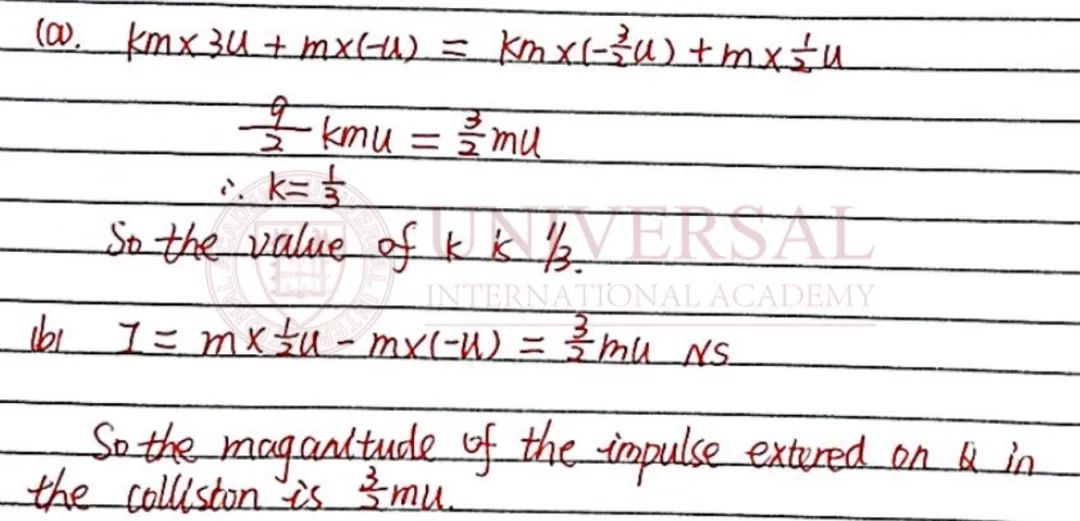 (a). km×3u + m×(-u) = km×(-3/2u) + m×1/2u
9/2 kmu = 3/2 mu
∴ k = 1/3
So the value of k is 1/3.
UNIVERSAL
INTERNATIONAL ACADEMY
(b) I = m×1/2u - m×(-u) = 3/2 mu NS
So the maganitude of the impulse extered on Q in
the collision is 3/2 mu.